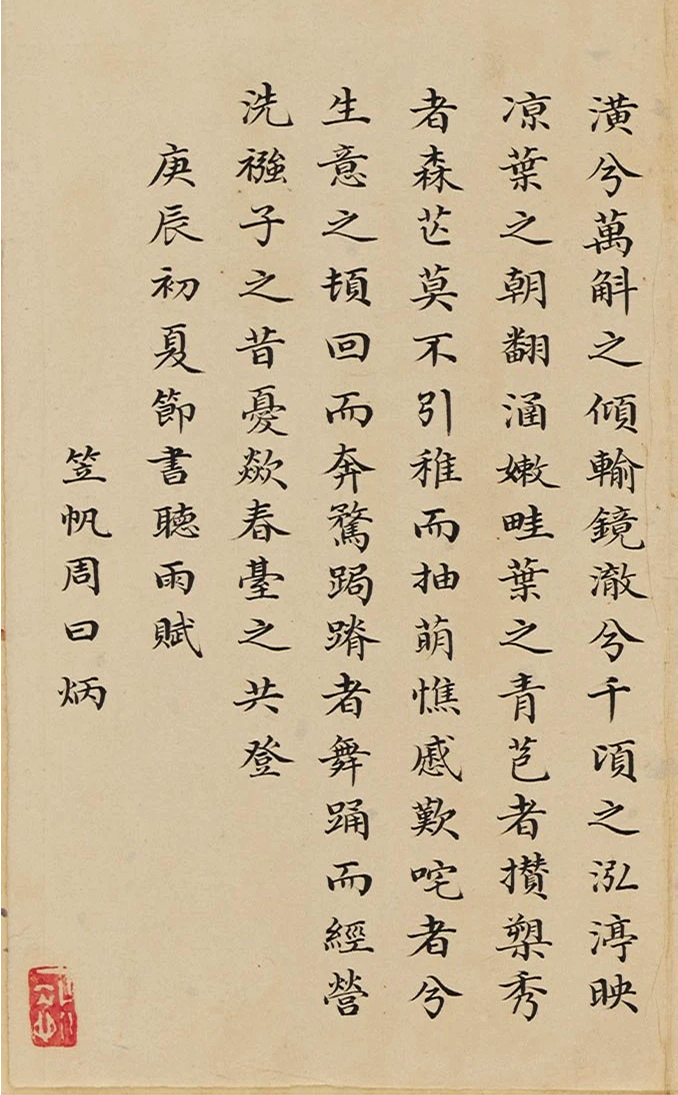 潢兮萬斛之傾輸鏡澈兮千頃之泓渟映
凉葉之朝翻涵嫩畦葉之青芭者攢槊秀
者森芒莫不引稚而抽萌憔慼歎咤者兮
生意之頓回而奔騖跼蹐者舞踊而經營
洗襁子之昔憂歘春臺之共登
庚辰初夏節書聽雨賦
笠帆周曰炳